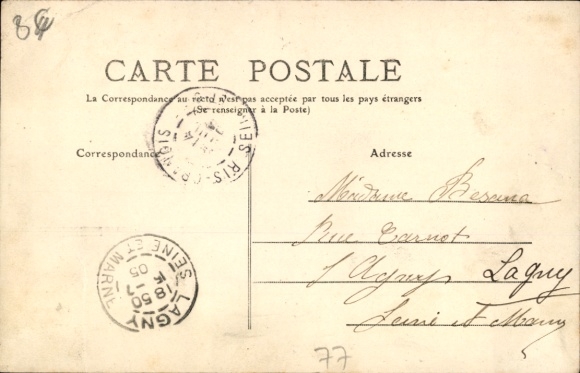 CARTE POSTALE
La Correspondance au recto n'est pas acceptée par tous les pays étrangers
(Se renseigner à la Poste)
Correspondance
Adresse
Madame Besana
Rue Carnot
Lagny
Seine et Marne
LAGNY
SEINE ET MARNE
05
77